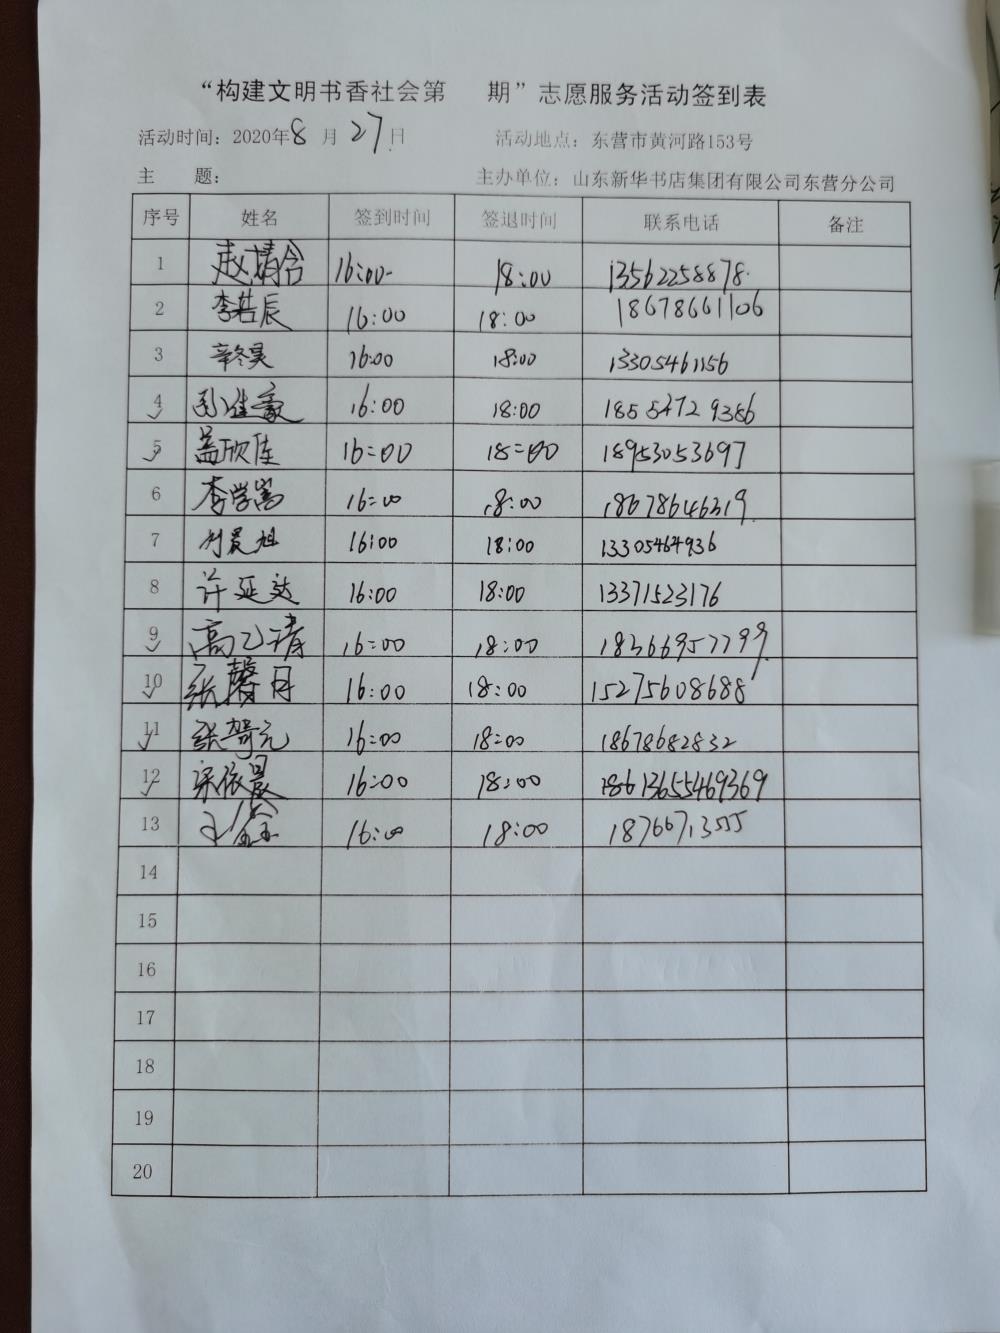 “构建文明书香社会第 期”志愿服务活动签到表
活动时间：2020年8月27日 活动地点：东营市黄河路153号
主 题： 主办单位：山东新华书店集团有限公司东营分公司
序号 姓名 签到时间 签退时间 联系电话 备注
1 赵婧含 16:00 18:00 13562258878
2 李若辰 16:00 18:00 18678661106
3 辛冬昊 16:00 18:00 13305461156
4 孙佳豪 16:00 18:00 18554729386
5 盖欣佳 16:00 18:00 18953053697
6 李学嵩 16:00 18:00 18678646319
7 刘晨旭 16:00 18:00 13305464936
8 许延达 16:00 18:00 13371523176
9 高乙清 16:00 18:00 18366957799
10 张馨月 16:00 18:00 15275608688
11 张哿元 16:00 18:00 18678682832
12 宋依晨 16:00 18:00
13 王鑫 16:00 18:00
14
15
16
17
18
19
20